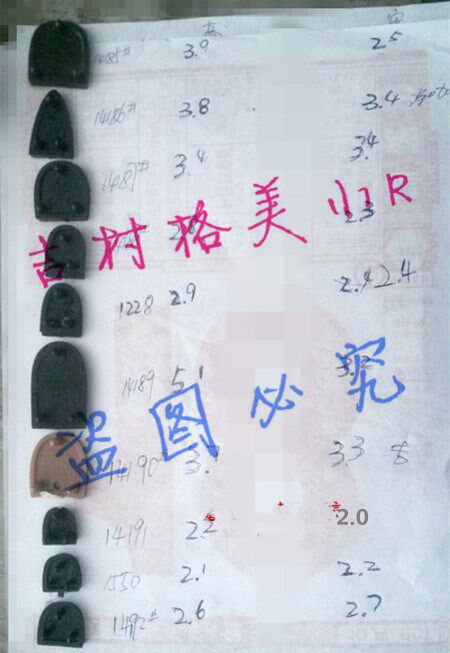 长 宽
1485# 3.9 2.5
1486# 3.8 3.4
1487# 3.4 3.4
吉村格美小R
2.3
1228 2.9 2.4 2.4
1489 5.1
盗图必究
14190# 3.7 3.3
14191 2.2 2.0
1550 2.1 2.2
1492# 2.6 2.7